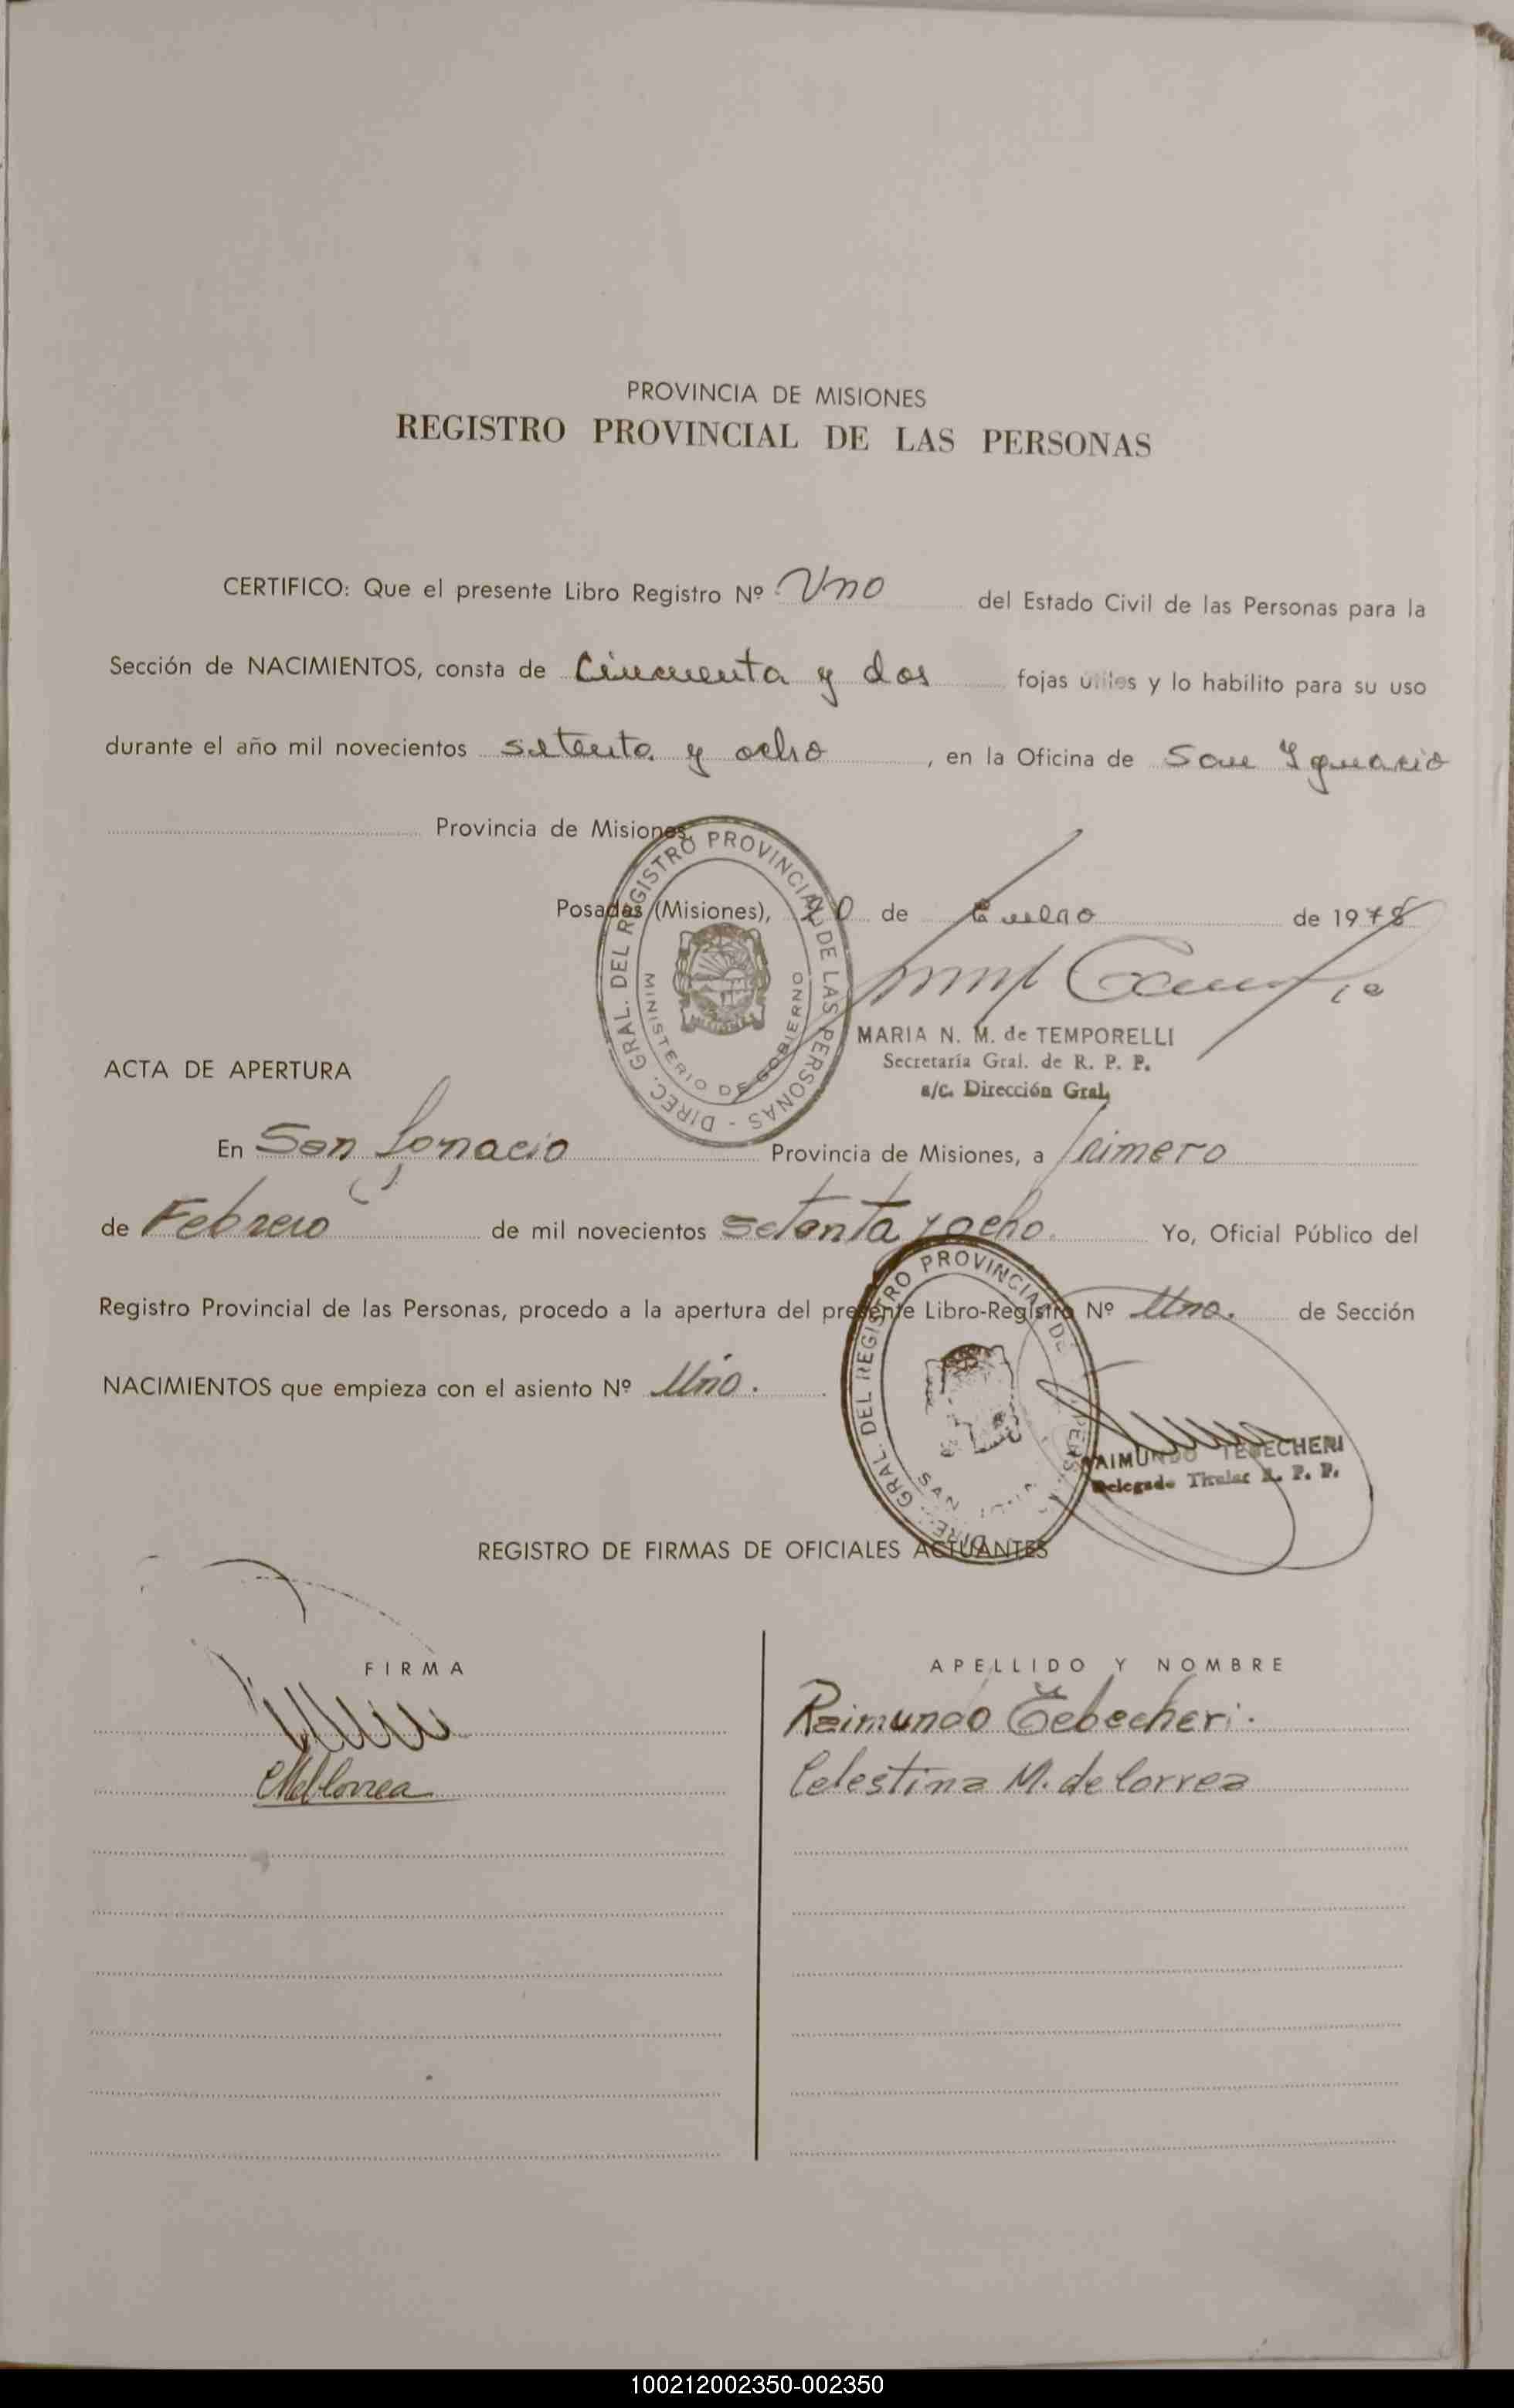 PROVINCIA DE MISIONES
REGISTRO PROVINCIAL DE LAS PERSONAS
CERTIFICO: Que el presente Libro Registro Nº Uno del Estado Civil de las Personas para la
Sección de NACIMIENTOS, consta de Cincuenta y dos fojas utiles y lo habilito para su uso
durante el año mil novecientos setenta y ocho, en la Oficina de San Ignacio
Provincia de Misiones.
DIREC. GRAL. DEL REGISTRO PROVINCIAL DE LAS PERSONAS -
MINISTERIO DE GOBIERNO
Posadas (Misiones), de Enero de 1978
MARIA N. M. de TEMPORELLI
Secretaría Gral. de R. P. P.
a/c. Dirección Gral.
ACTA DE APERTURA
En San Ignacio Provincia de Misiones, a primero
de Febrero de mil novecientos setenta y ocho. Yo, Oficial Público del
Registro Provincial de las Personas, procedo a la apertura del presente Libro-Registro Nº Uno. de Sección
NACIMIENTOS que empieza con el asiento Nº Uno.
DIREC. GRAL. DEL REGISTRO PROVINCIAL DE PERS
SAN
RAIMUNDO TEBECHERI
Delegado Titular R. P. P.
REGISTRO DE FIRMAS DE OFICIALES ACTUANTES
FIRMA
APELLIDO Y NOMBRE
Raimundo Tebecheri.
Celestina M. de Correa
100212002350-002350